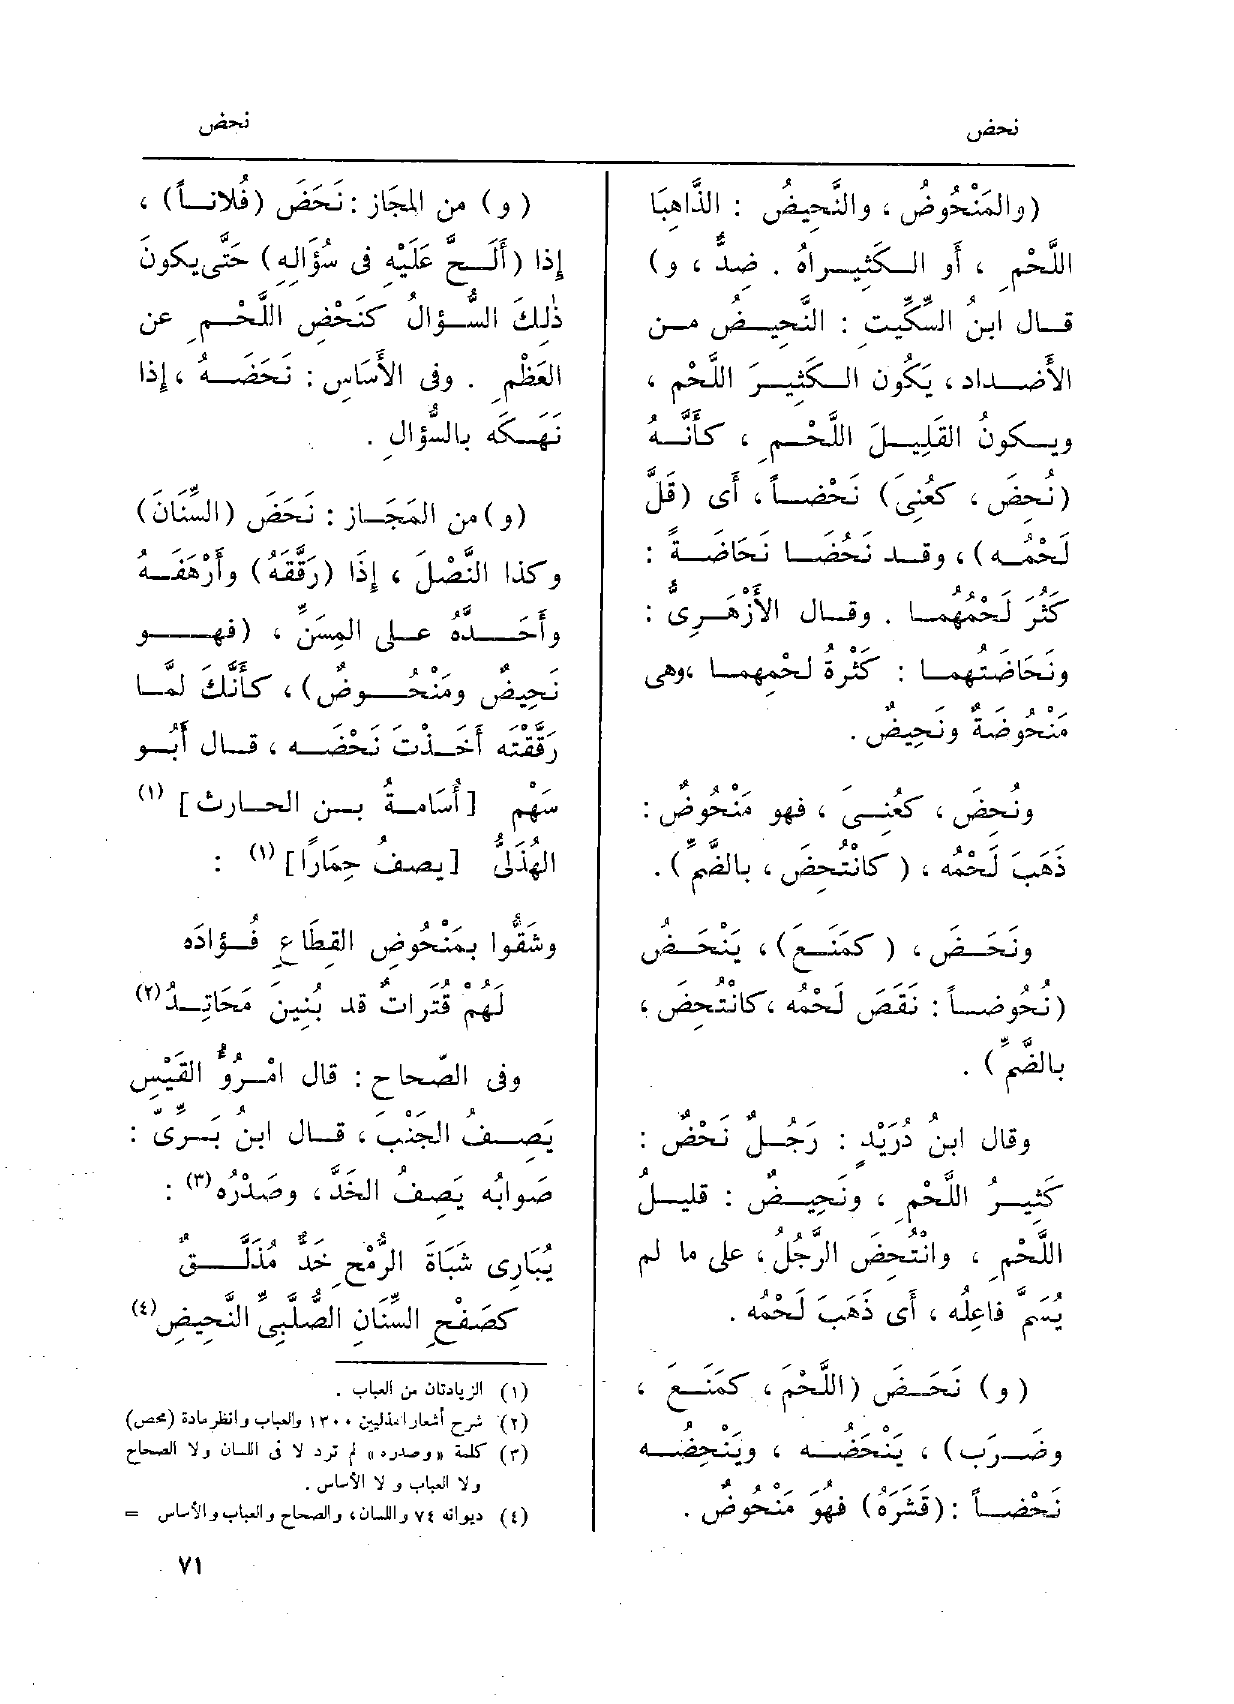 نحض
نحض
(والمَنْحُوضُ ، والنَّحِيضُ : الذَّاهِبَا
اللَّحْمِ ، أَو الكَثِيراهُ . ضِدٌّ ، و)
قال ابنُ السِّكِّيتِ : النَّحِيضُ من
الأَضداد ، يَكُون الكَثِيرَ اللَّحْمِ ،
ويكونُ القَلِيلَ اللَّحْمِ ، كأَنَّهُ
(نُحِضَ ، كعُنِىَ) نَحْضاً ، أَى (قَلَّ
لَحْمُه) ، وقد نَحُضَا نَحَاضَةً :
كَثُرَ لَحْمُهُما . وقال الأَزْهَرِىُّ :
ونَحَاضَتُهما : كَثْرَةُ لحْمِهما ،وهى
مَنْحُوضَةٌ ونَحِيضٌ .
ونُحِضَ ، كعُنِىَ ، فهو مَنْحُوضٌ :
ذَهَبَ لَحْمُه ، (كانْتُحِضَ ، بالضَّمِّ) .
ونَحَضَ ، (كمَنَعَ) ، يَنْحَضُ
(نُحُوضاً : نَقَصَ لَحْمُه ،كانْتُحِضَ ،
بالضَّمِّ) .
وقال ابنُ دُرَيْدٍ : رَجُلٌ نَحْضٌ :
كَثِيرُ اللَّحْمِ ، ونَحِيضٌ : قليلُ
اللَّحْمِ ، وانْتُحِضَ الرَّجُلُ ، على ما لم
يُسَمَّ فاعِلُه ، أَى ذَهَبَ لَحْمُه .
(و) نَحَضَ (اللَّحْمَ ، كمَنَعَ ،
وضَرَب) ، يَنْحَضُه ، ويَنْحِضُه
نَحْضاً :(قَشَرَهُ) فهُوَ مَنْحُوضٌ .
(و) من المجَاز :نَحَضَ (فُلاناً) ،
إِذا (أَلَحَّ عَلَيْهِ فى سُؤَالِهِ) حَتَّى يكونَ
ذٰلِكَ السُّؤالُ كنَحْضِ اللَّحْمِ عن
العَظْمِ . وفى الأَسَاسِ : نَحَضَهُ ، إِذا
نَهَكَه بالسُّؤالِ .
(و) من المَجَاز : نَحَضَ (السِّنَانَ)
وكذا النَّصْلَ ، إِذَا (رَقَّقَهُ) وأَرْهَفَهُ
وأَحَدَّهُ على المِسَنِّ ، (فهو
نَحِيضٌ ومَنْحُوضٌ) ، كأَنَّكَ لَمَّا
رَقَّقْتَه أَخَذْتَ نَحْضَه ، قال أَبُو
سَهْمٍ [أُسَامَةُ بن الحارث] (١)
الهُذَلِىُّ [يصفُ حِمَارًا] (١) :
وشَقُّوا بمَنْحُوضِ القِطَاعِ فُؤادَه
لَهُمْ قُتَراتٌ قد بُنِينَ مَحَاتِدُ(٢)
وفى الصّحاح : قال امْرُؤُ القَيْسِ
يَصِفُ الجَنْبَ ، قال ابنُ بَرِّىّ :
صَوابُه يَصِفُ الخَدَّ ، وصَدْرُه(٣) :
يُبَارِى شَبَاةَ الرُّمْحِ خَدٌّ مُذَلَّقٌ
كصَفْحِ السِّنَانِ الصُّلَّبِىِّ النَّحِيضِ(٤)
(١) الزيادتان من العباب .
(٢) شرح أشعار الهذليين ١٣٠٠ والعباب وانظر مادة (محص)
(٣) كلمة «وصدره» لم ترد لا فى اللسان ولا الصحاح
ولا العباب ولا الأساس .
(٤) ديوانه ٧٤ واللسان، والصحاح والعباب والأساس =
٧١